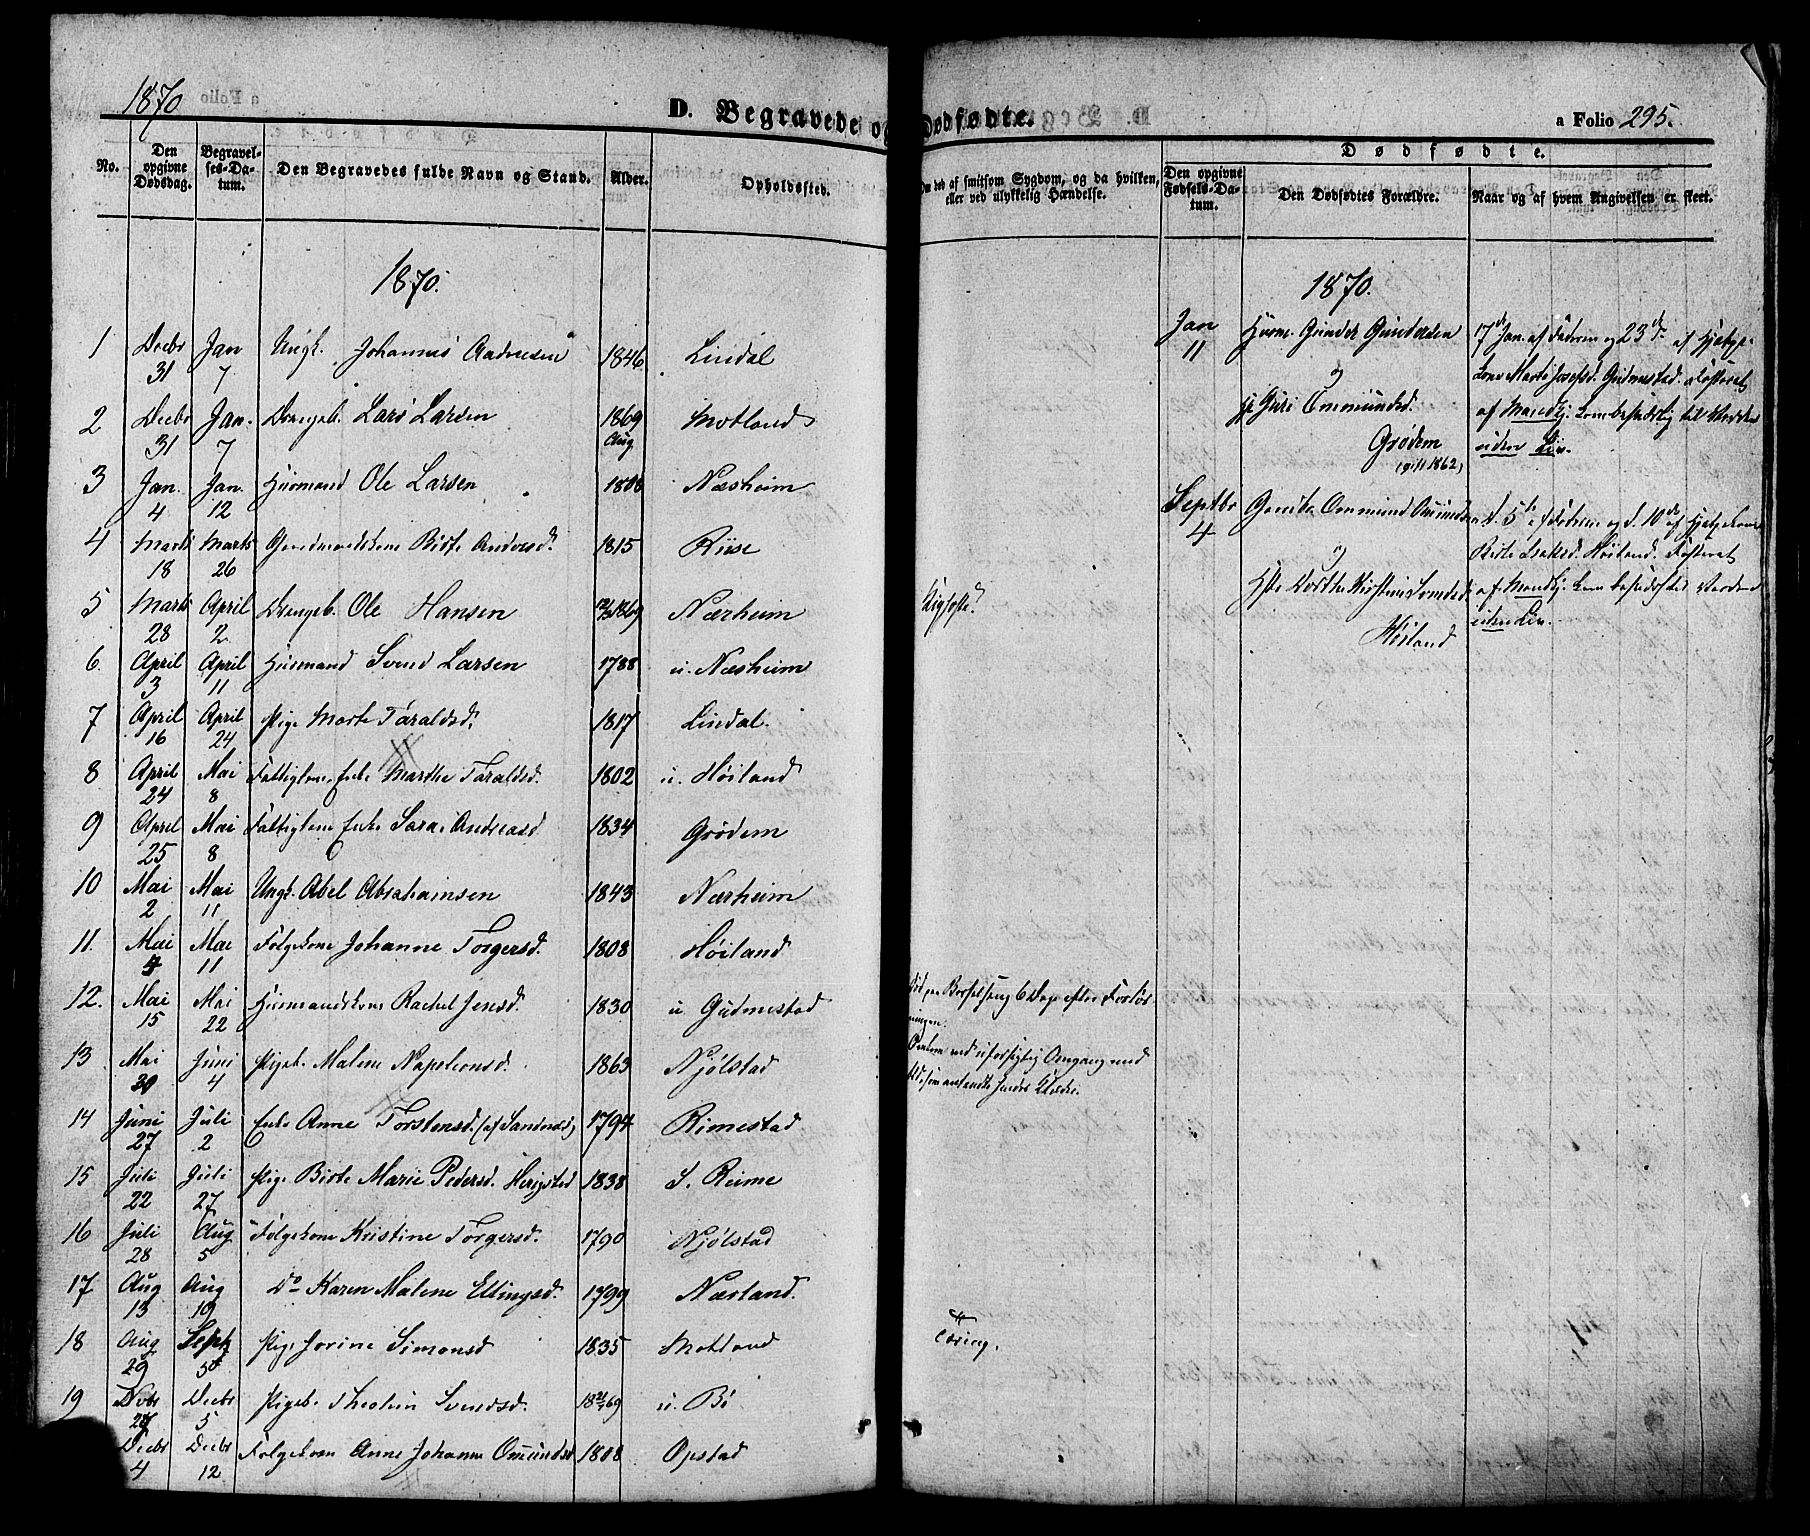 1870
D. Begravede og Dødfødte.
a Folio 295.
No. Den opgivne Dødsdag. Begravelses-Datum. Den Begravedes fulde Navn og Stand. Alder. Opholdssted.
død af smitsom Sygdom, og da hvilken, eller ved ulykkelig Hændelse.
Dødfødte.
Den opgivne Fødsels-Datum. Den Dødfødtes Forældre. Naar og af hvem Angivelsen er skeet.
1870.
1 Decbr 31 Jan 7 Ungk. Johannes 1846 Lindal
2 Decbr 31 Jan. 7 Drengeb. Lars Larsen 1869 Aug Motland
3 Jan. 4 Jan. 12 Huusmand Ole Larsen Næsheim
4 Marts 18 Marts 26 Gaardmandskone Birte Andersd. 1815 Riise
5 Marts 28 April 2 Drengeb. Ole Hansen 1869 Nærheim Kighoste.
6. April 3 April 11 Huusmand Svend Larsen 1788 u. Næsheim
7 April 16 April 24 Pige Marte Taraldsd. 1817 Lindal.
8 April 24 Mai 8 Fattiglem, Enke Marthe Taraldsd. 1802 u. Höiland
9 April 25 Mai 8 Fattiglem Enke Sara Andreasd 1834 Grödem
10 Mai 2 Mai 11 Ungk. Abel Abrahamsen 1843 Nærheim
11. Mai Mai 11 Fölgekone Johanne Torgersd. 1808 Höiland
12. Mai 15 Mai 22 Huusmandskone Rachel Jensd. 1830 u. Gudmestad
Barselseng 6 Dage efter Forlösningen.
13 Mai 30 Juni 4 Pigeb. Malene Napoleonsd. 1863 Njölstad
ved uforsigtig Omgang med
som antændte hendes Klæder.
14 Juni 27 Juli 2 Enke Anne Torstensd. (af Sandnes) 1794 Rimestad
15 Juli 22 Juli 27 Pige Birte Marie Pedersd. Herigstad 1838 S. Reime
16 Juli 28 Aug 5 Fölgekone Kristine Torgersd. 1790 Njölstad
17 Aug 13 Aug 19 Do Karen Malene Ellingsd. 1799 Nærland.
18 Aug 29 Septb 5 Pige Jorine Simonsd 1835 Motland Tæring.
19 Novbr Decbr 5 Pigeb. Svendsd. 69 u. Bö
Decbr 4 Decbr 12 Fölgekone Anne Johanne Omundsd 1808 Opstad
1870.
Jan 11 Huusm. Gunder Gundersen
og
Guri Ommundsd.
Grödem
(gift 1862)
17de Jan. af Faderen og 23de af Hjælpekone Marte Josefsd. Gudmestad. Fosteret af Mandkj. kom til Verden uden Liv.
Septbr 4 Gaardbr. Ommund
og
Hst. Dorthe Kirstine
Höiland
d. 5te af Faderen og d. 10de af Hjælpekone Birte Isaksd. Höiland. Fosteret af Mandkj. kom til Verden uden Liv.